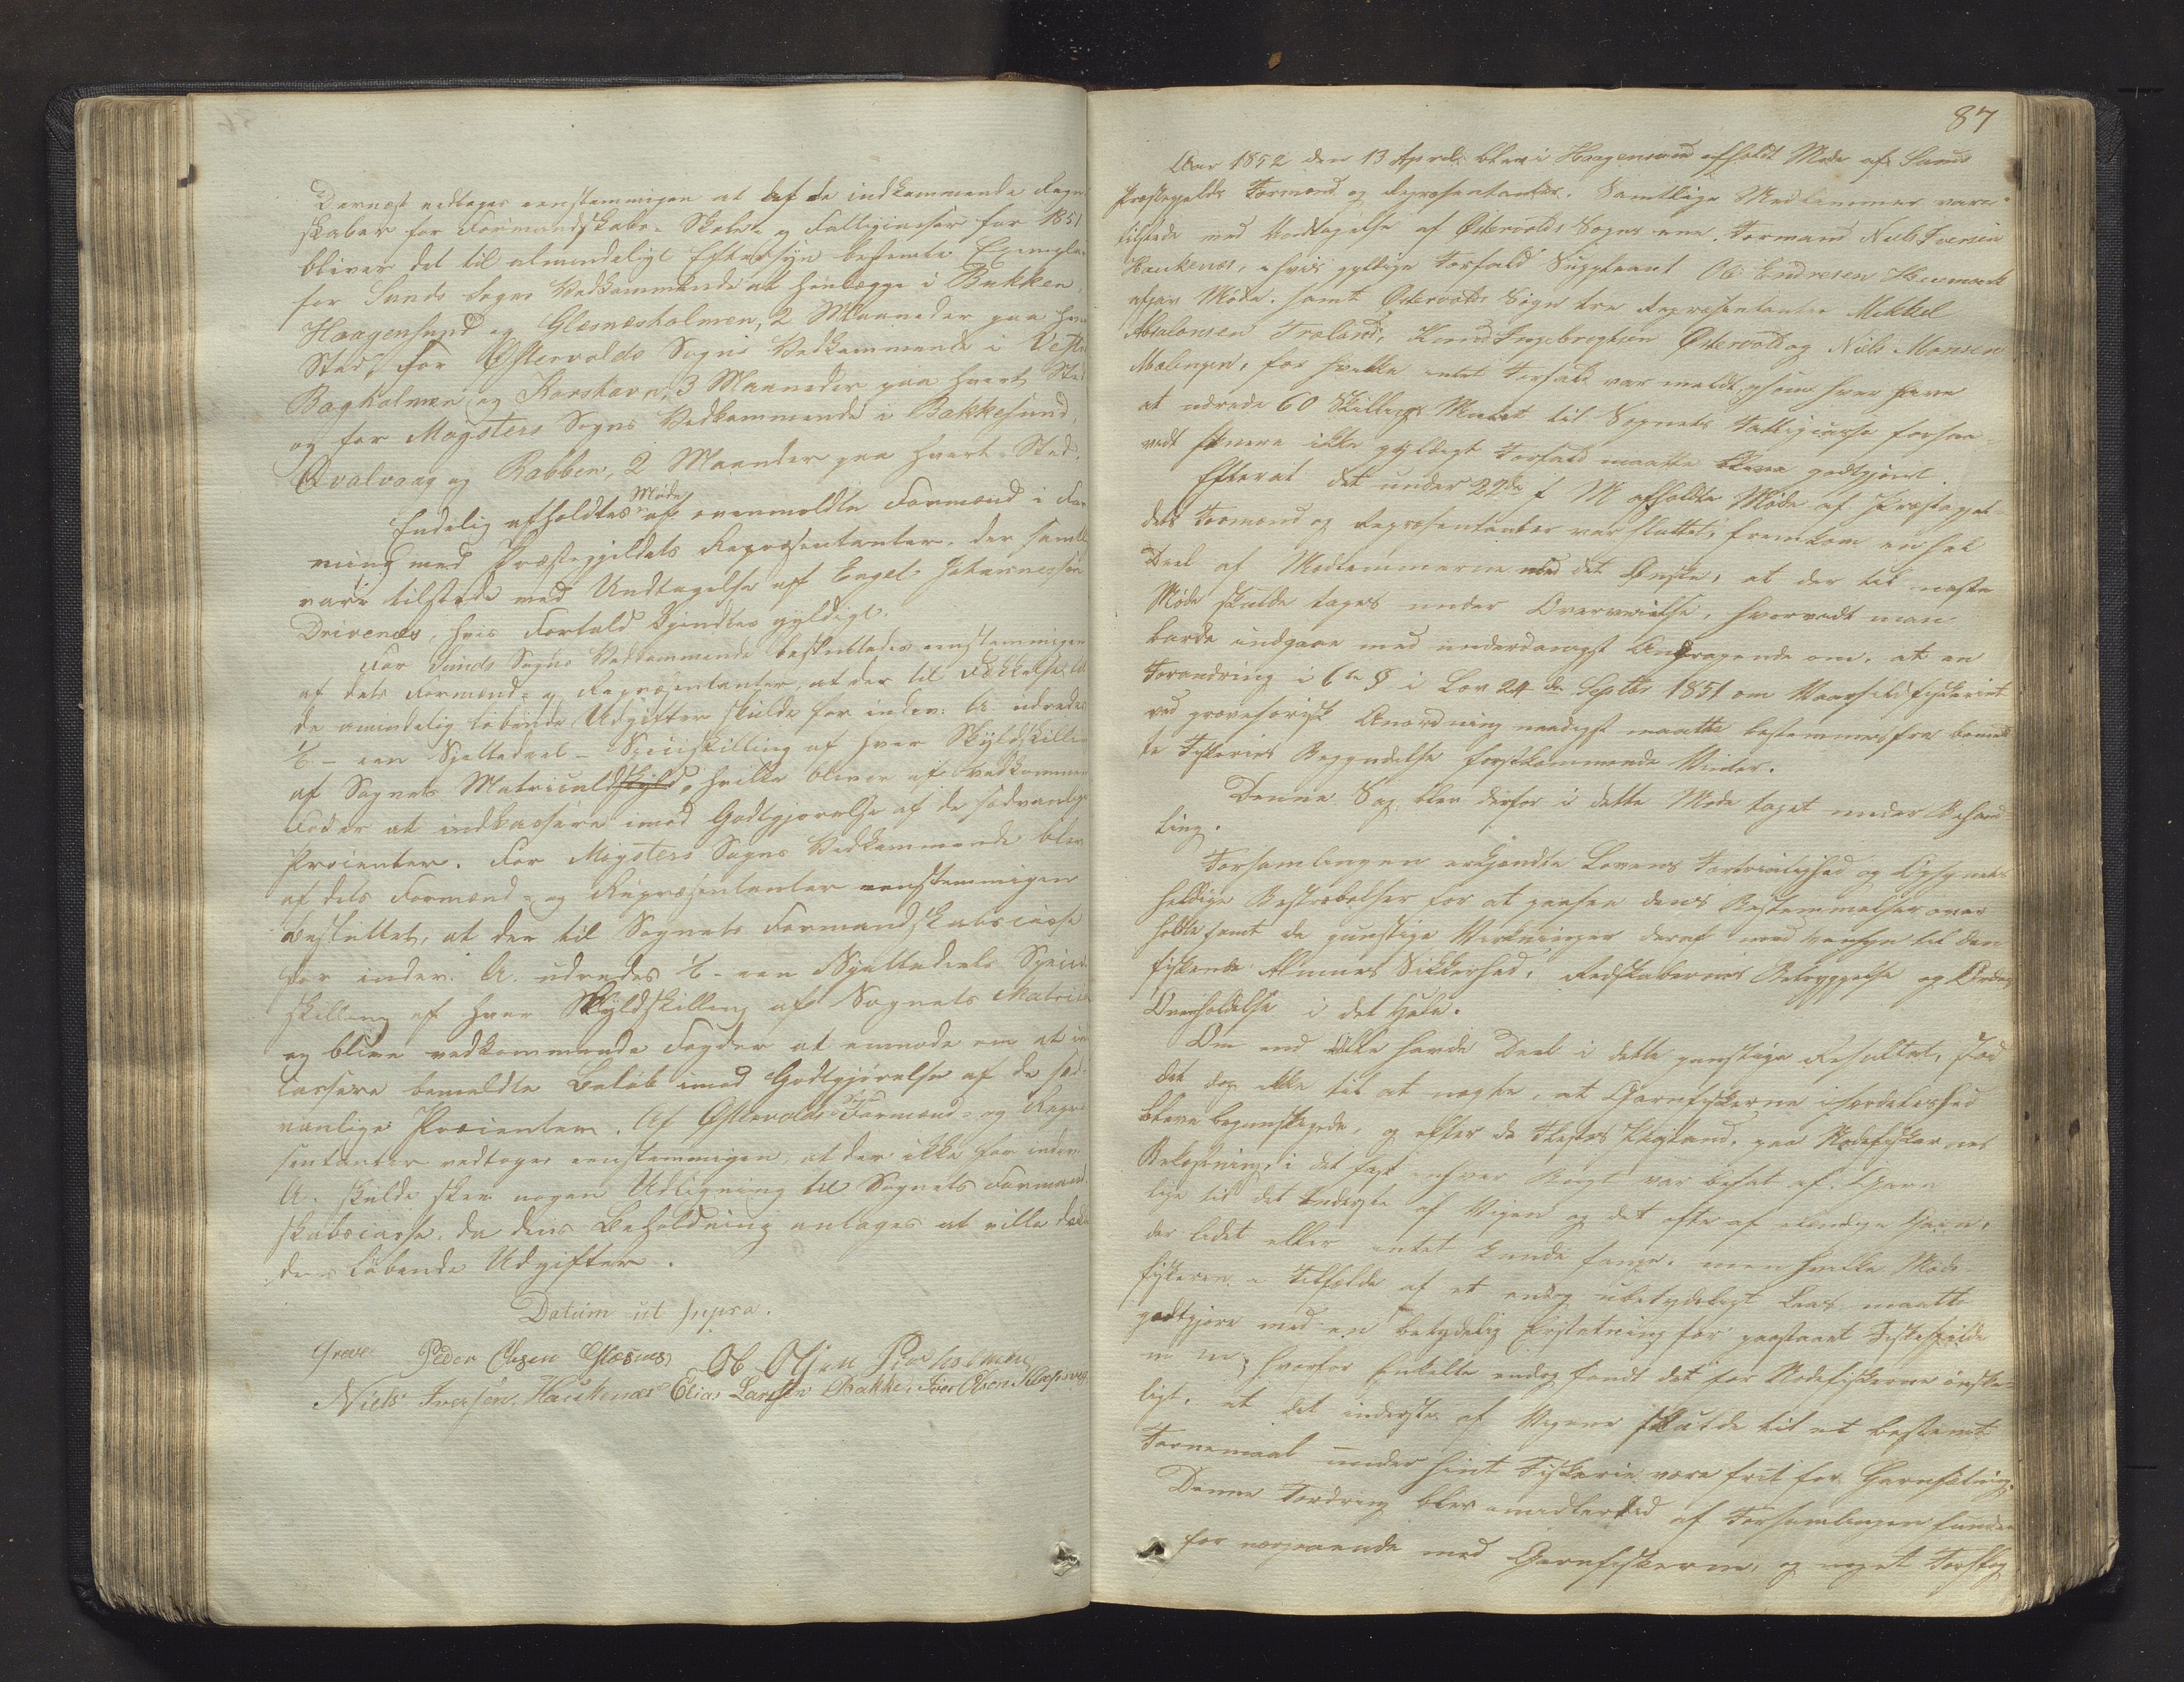 Dernæst vedtoges eenstemmigen at af de indkommende Regn-
skaber for Formandskabs- Skole- og Fattigcasser for 1851
bliver det til almindeligt Eftersyn bestemte Exemplar
for Sunds Sogns Vedkommende at henlægge i Bukken,
Haagensund og Glesnæsholmen, 2 Maaneder paa hvert
Sted, for Østervolds Sogns Vedkommende i Vestre
Bagholmen og Karshavn, 3 Maaneder paa hvert Sted
og for Magsters Sogns Vedkommende i Bakkesund,
Qvalvaag og Rabben, 2 Maaneder paa hvert Sted.
Endelig afholdtes Møde af ovenmeldte Formænd i For-
ening med Præstegjeldets Repræsentanter, der samtl
vare tilstede med Undtagelse af Engel Johannessen
Drivenæs, hvis Forfald kjendtes gyldigt.
For Sunds Sogns Vedkommende besluttedes eenstemmigen
af dets Formænd- og Repræsentanter, at der til Dækkelse af
de almindelig løbende Udgifter skulde for indev. A. udredes
1/6 - een Sjettedeel - Speciskilling af hver Skyldskilling
af Sognets Matriculskyld, hvilke bliver af vedkommende
Foder at indkassere imod Godtgjørelse af de sædvanlige
Procenter. For Møgsters Sogns Vedkommende blev
af dets Formænd- og Repræsentanter eenstemmigen
besluttet, at der til Sognets Formandskabscasse
for indev. A. udredes 1/6 - een Sjettedeels Speci-
skilling af hver Skyldskilling af Sognets Matricul
og blive vedkommende Fogder at anmode om at in
cassere bemeldte Beløb imod Godtgjørelse af de sæd-
vanlige Procenter. Af Østervolds Sogns Formænd- og Repræ
sentanter vedtoges eenstemmigen, at der ikke for indev.
A. skulde skee nogen Udligning til Sognets Formand
skabscasse, da dens Beholdning antages at ville dække
dens løbende Udgifter.
Datum ut supra.
Greve Peder Olsen Glesnæs Ob Olsen Pineholmen
Niels Iversen Haukenæs Elias Larssen Bakke, Iver Olsen Klepsvig
87
Aar 1852 den 13 April blev i Haagensund afholdt Møde af Sunds
Præstegjelds Formænd og Repræsentanter. Samtlige Medlemmer vare
tilstede med Undtagelse af Østervolds Sogns ene Formand Niels Iversen
Haukenæs, i hvis gyldige Forfald Suppleant Ole Endresen
afgav Møde, samt Østervolds Sogns tre Repræsentanter Mikkel
Absalonsen Træland, Knud Ingebrigtsen Østervold og Niels Monsen
Malingen, for hvilke intet Forfald var meldt, hvorfor hver have
at udrede 60 Skilling Mulct til Sognets Fattigcasse forsaa-
vidt senere ikke gyldigt Forfald maatte blive godtgjort.
Efterat det under 22de f M afholdte Møde af Præstegjel-
dets Formænd og Repræsentanter var sluttet, fremkom en heel
Deel af Medlemmerne med det Ønske, at der til næste
Møde skulde tages under Overveielse, hvorvidt man
burde indgaae med underdanigst Andragende om, at en
Forandring i 6te § i Lov 24de Septbr 1851 om Vaarsildfiskeriet
ved provisorisk Anordning naadigst maatte bestemmes fra bemeld-
te Fiskeries Begyndelse førstkommende Vinter.
Denne Sag blev derfor i dette Møde taget under Behand-
ling.
Forsamlingen erkjendte Lovens Fortrinlighed og Opsynets
heldige Bestræbelser for at paasee dens Bestemmelser over
holdte samt de gunstige Virkninger deraf med Hensyn til den
fiskende Almues Sikkerhed, Redskabernes Betryggelse og Ordens
Overholdelse i det Hele.
Om end Alle havde Deel i dette gunstige Resultat, lod
det dog ikke til at nægte, at Garnfiskerne isærdeleshed
bleve begunstigede, og efter de Flestes Tilstand, paa Nodefiskernes
Bekostning, i det fast enhver Bugt var besat af Garn
lige til det Inderste af Vigen og det ofte af elendige Garn,
der lidet eller intet kunde fange, men hvilke Node-
fiskeren i Tilfælde af et endog ubetydeligt Laas maatte
godtgjøre med en betydelig Erstatning for paastaaet Fiskespilde
m m; hvorfor Enkelte endog fandt det for Nodefiskerne ønske-
ligt, at det inderste af Vigene skulde til et bestemt
Favnemaal under hint Fiskerie være frit for Garnsætning.
Denne Fordring blev imidlertid af Forsamlingen funden
for nærgaaende mod Garnfiskerne, og noget Forslag